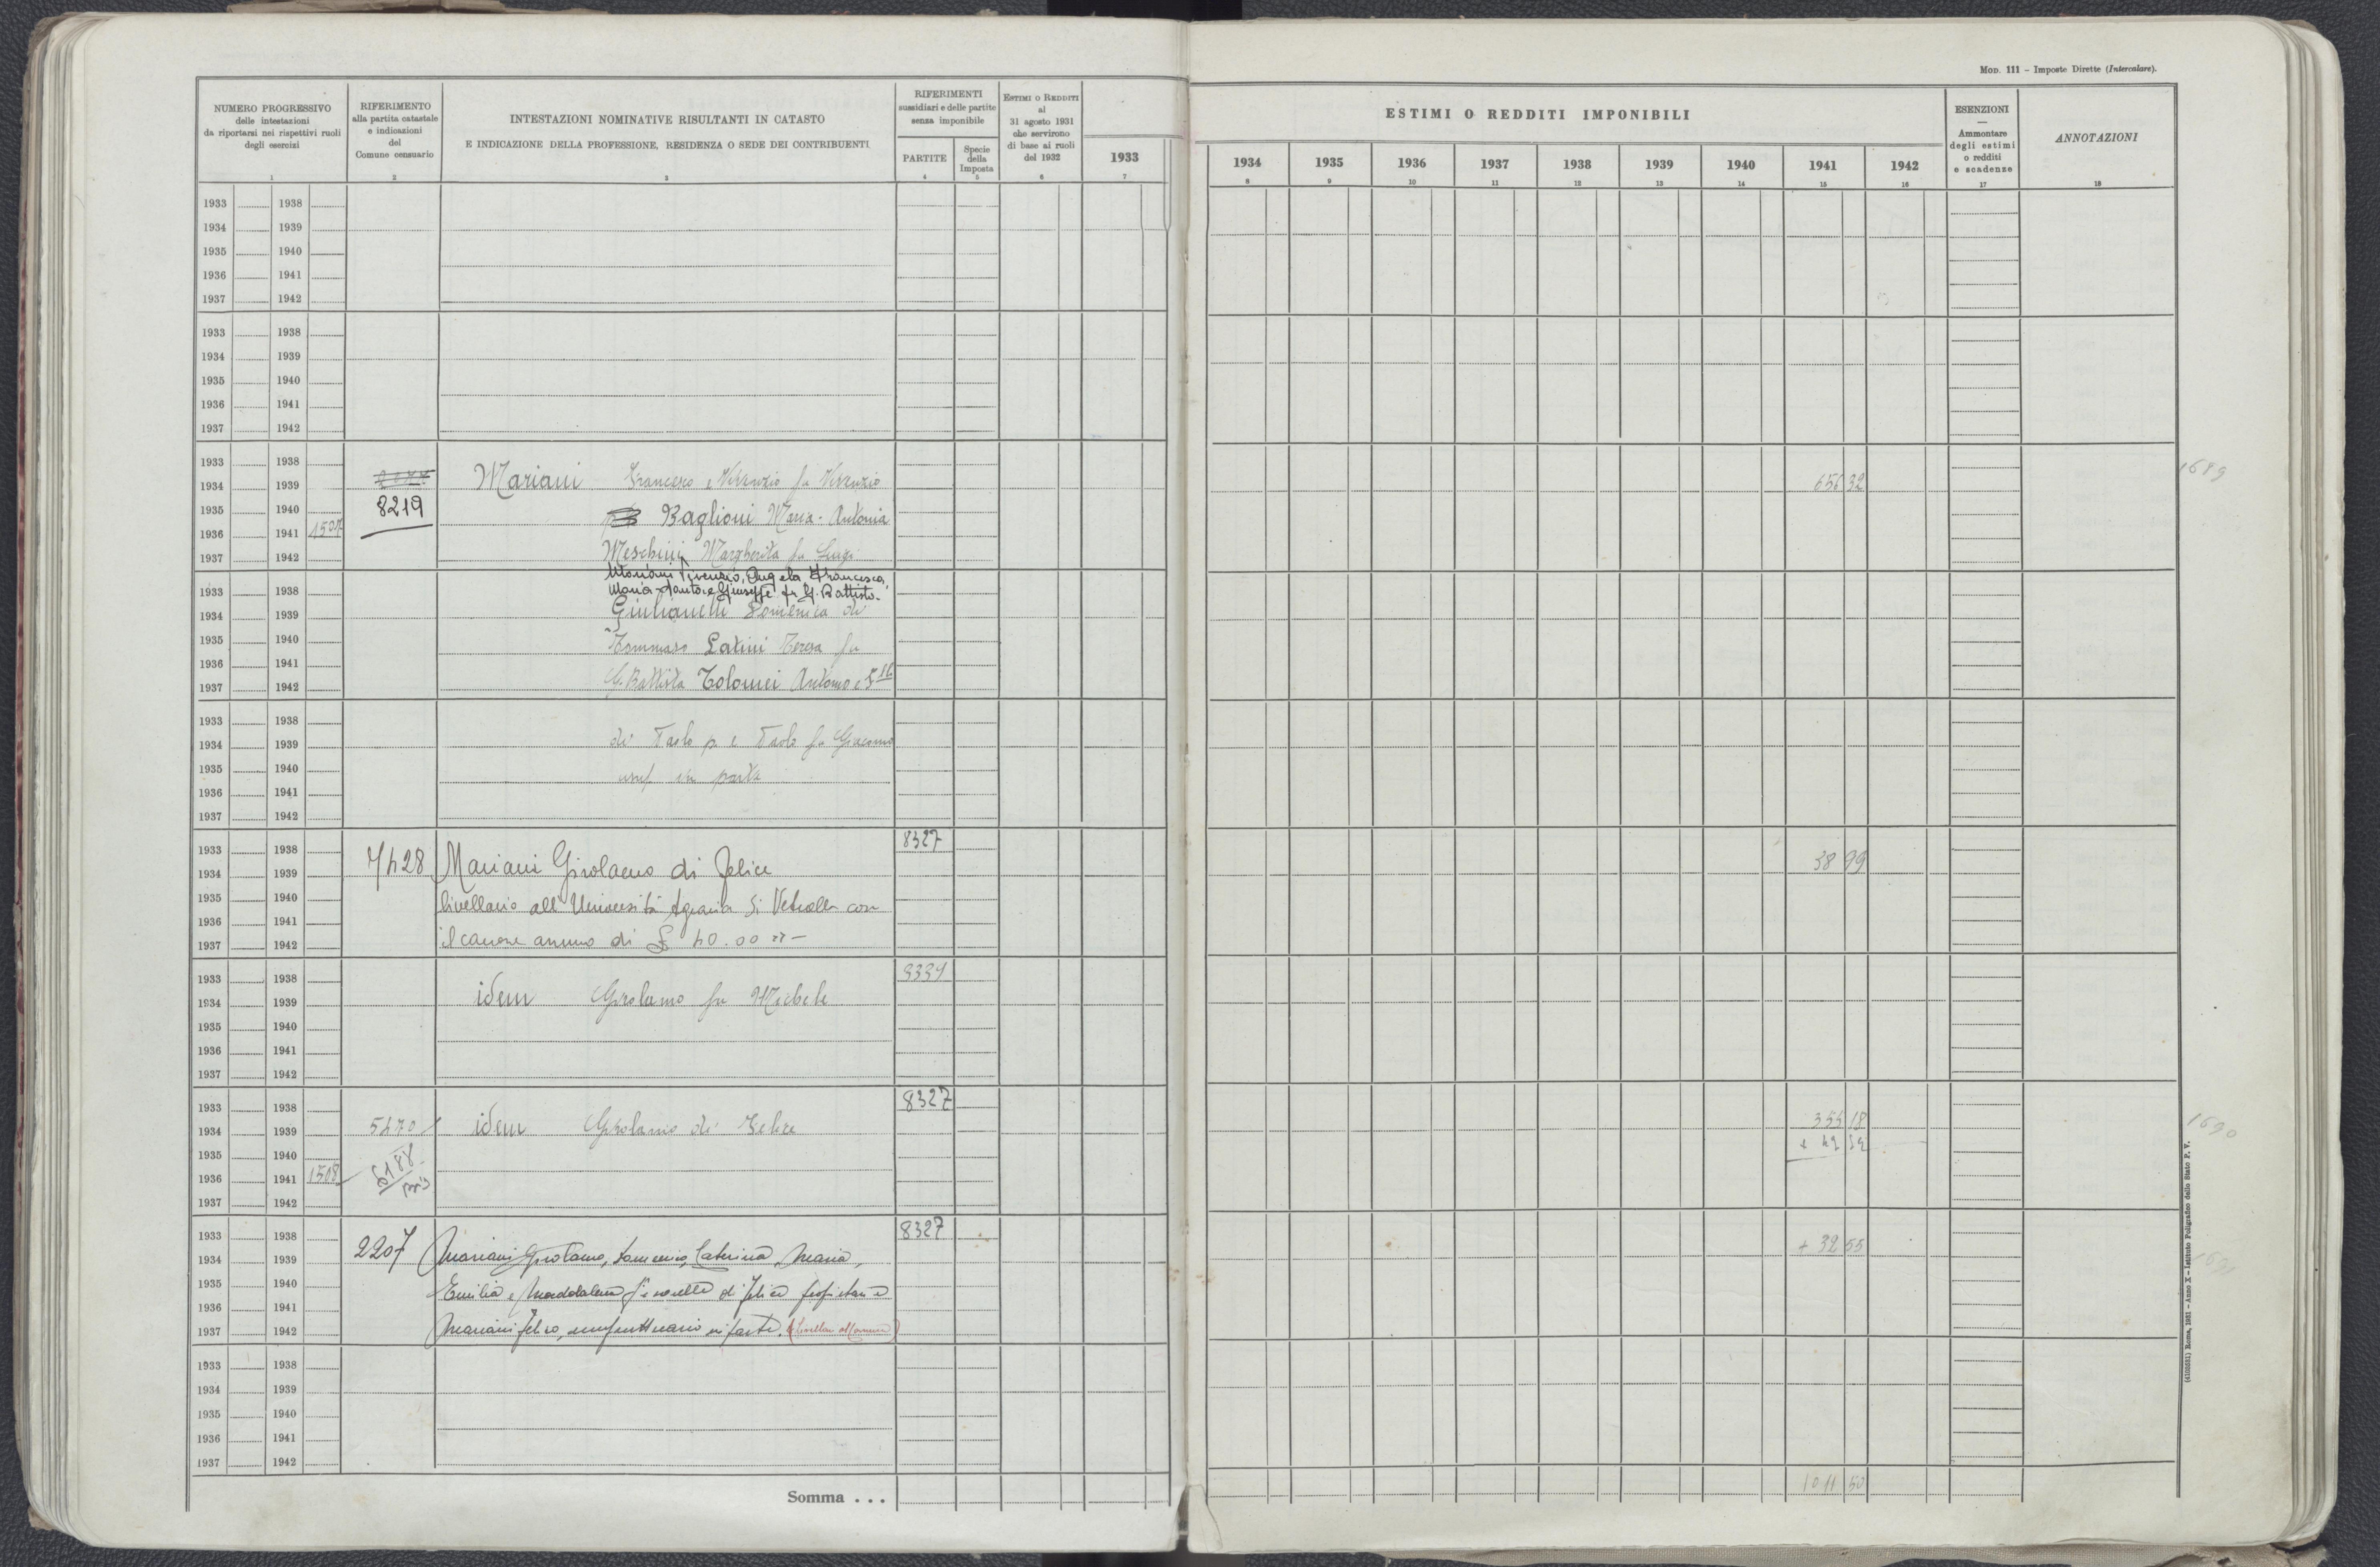 MOD. 111 – Imposte Dirette (Intercalare).
NUMERO PROGRESSIVO
delle intestazioni
da riportarsi nei rispettivi ruoli
degli esercizi
1
RIFERIMENTO
alla partita catastale
e indicazioni
del
Comune censuario
2
INTESTAZIONI NOMINATIVE RISULTANTI IN CATASTO
E INDICAZIONE DELLA PROFESSIONE, RESIDENZA O SEDE DEI CONTRIBUENTI
3
RIFERIMENTI
sussidiari e delle partite
senza imponibile
PARTITE
4
Specie
della
Imposta
5
ESTIMI O REDDITI
al
31 agosto 1931
che servirono
di base ai ruoli
del 1932
6
ESTIMI O REDDITI IMPONIBILI
1933 1934 1935 1936 1937 1938 1939 1940 1941 1942
7 8 9 10 11 12 13 14 15 16
ESENZIONI
—
Ammontare
degli estimi
o redditi
e scadenze
17
ANNOTAZIONI
18
1933 1938
1934 1939
1935 1940
1936 1941
1937 1942
1933 1938
1934 1939
1935 1940
1936 1941
1937 1942
1933 1938
1934 1939 Mariani Francesco e Vivenzio fu Vivenzio 656 32 1689
1935 1940 8219 Baglioni Maria-Antonia
1936 1941 1507
1937 1942 Meschini Margherita fu Luigi
Mariani Vivenzio, Angela Francesca,
1933 1938 Maria Santa e Giuseppe fu G. Battista
1934 1939 Giulianelli Domenica di
1935 1940 Tommaso Latini Teresa fu
1936 1941
1937 1942 G. Battista Tolomei Antonio e
1933 1938
1934 1939 di Paolo p. e Paolo fu Giacomo
1935 1940 usuf in parte
1936 1941
1937 1942
1933 1938 8327
1934 1939 7428 Mariani Girolamo di Felice 38 99
1935 1940 livellario all'Università Agraria di Vetralla con
1936 1941
1937 1942 il canone annuo di £ 40.00
1933 1938
1934 1939 idem Girolamo fu Michele
1935 1940
1936 1941
1937 1942
1933 1938 8327
1934 1939 5470 idem Girolamo di Felice 355 18 1690
1935 1940
1936 1941 1508 6188
1937 1942
1933 1938 8327
1934 1939 2207 Mariani Girolamo, Domenico, Caterina, Maria, + 32 55
1935 1940 Emilia e Maddalena di Felice
1936 1941
1937 1942 Mariani Felice, usufruttuario in parte.
1933 1938
1934 1939
1935 1940
1936 1941
1937 1942
Somma . . . 1011 50
(4103581) Roma, 1931 – Anno X – Istituto Poligrafico dello Stato P. V.